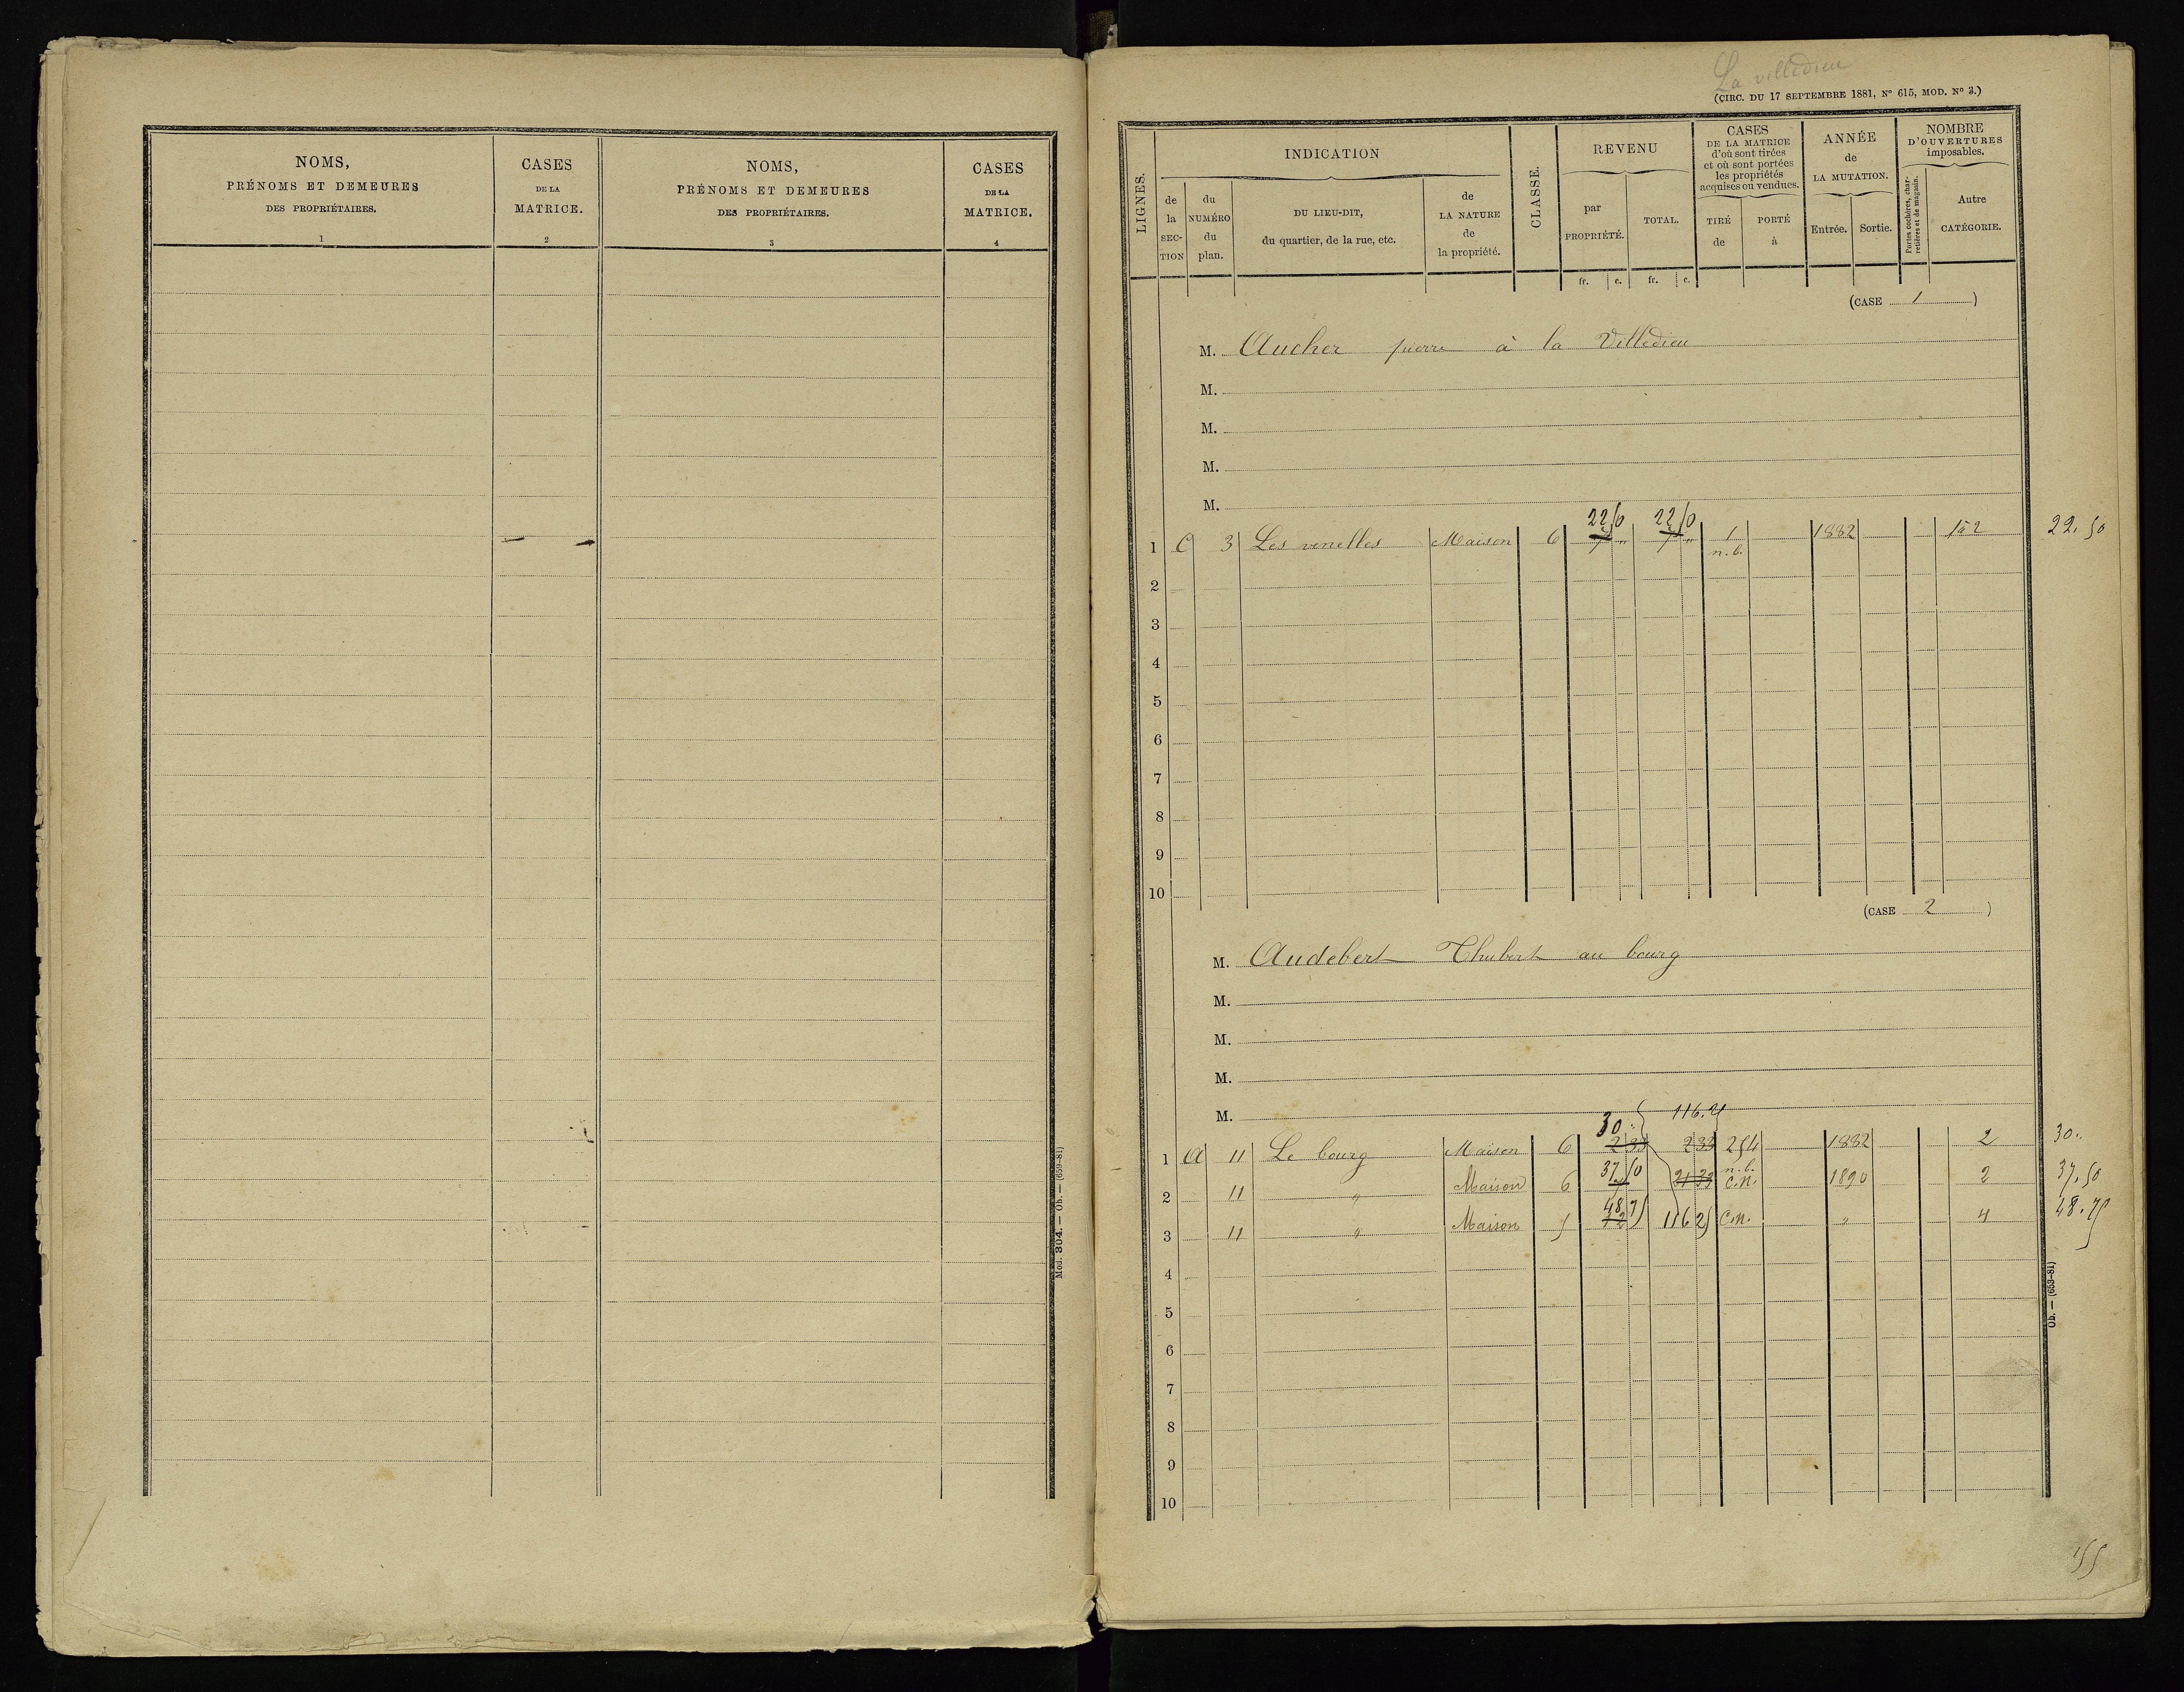 NOMS,
PRÉNOMS ET DEMEURES
DES PROPRIÉTAIRES.
1
CASES
DE LA
MATRICE.
2
NOMS,
PRÉNOMS ET DEMEURES
DES PROPRIÉTAIRES.
3
CASES
DE LA
MATRICE.
4
Mod. 304. — Ob. — (659-81)
La villedieu
(CIRC. DU 17 SEPTEMBRE 1881, N° 615, MOD. N° 3.)
LIGNES.
INDICATION
de la SEC-TION
du NUMÉRO du plan.
DU LIEU-DIT,
du quartier, de la rue, etc.
de LA NATURE de la propriété.
CLASSE.
REVENU
par PROPRIÉTÉ.
TOTAL.
fr. c. fr. c.
CASES
DE LA MATRICE
d'où sont tirées
et où sont portées
les propriétés
acquises ou vendues.
TIRÉ de
PORTÉ à
ANNÉE
de
LA MUTATION.
Entrée. Sortie.
NOMBRE
D'OUVERTURES
imposables.
Portes cochères, char-
retières et de magasin.
Autre
CATÉGORIE.
(CASE 1)
M. Aucher pierre à la Villedieu
M.
M.
M.
M.
22 50 22 50
1 C 3 Les venelles Maison 6 1 1882 1à2 22.50
n.b.
2
3
4
5
6
7
8
9
10
(CASE 2)
M. Audebert Thubert au bourg
M.
M.
M.
M.
30 116.25
1 A 11 Le bourg Maison 6 2 33 2 33 254 1882 2 30..
n.b.
2 11 " Maison 6 37 50 21 33 C.N. 1890 2 37,50
3 11 " Maison 5 48 75 116 25 C.N. " 4 48.75
4
5
6
7
8
9
10
Ob. — (653-81)
155